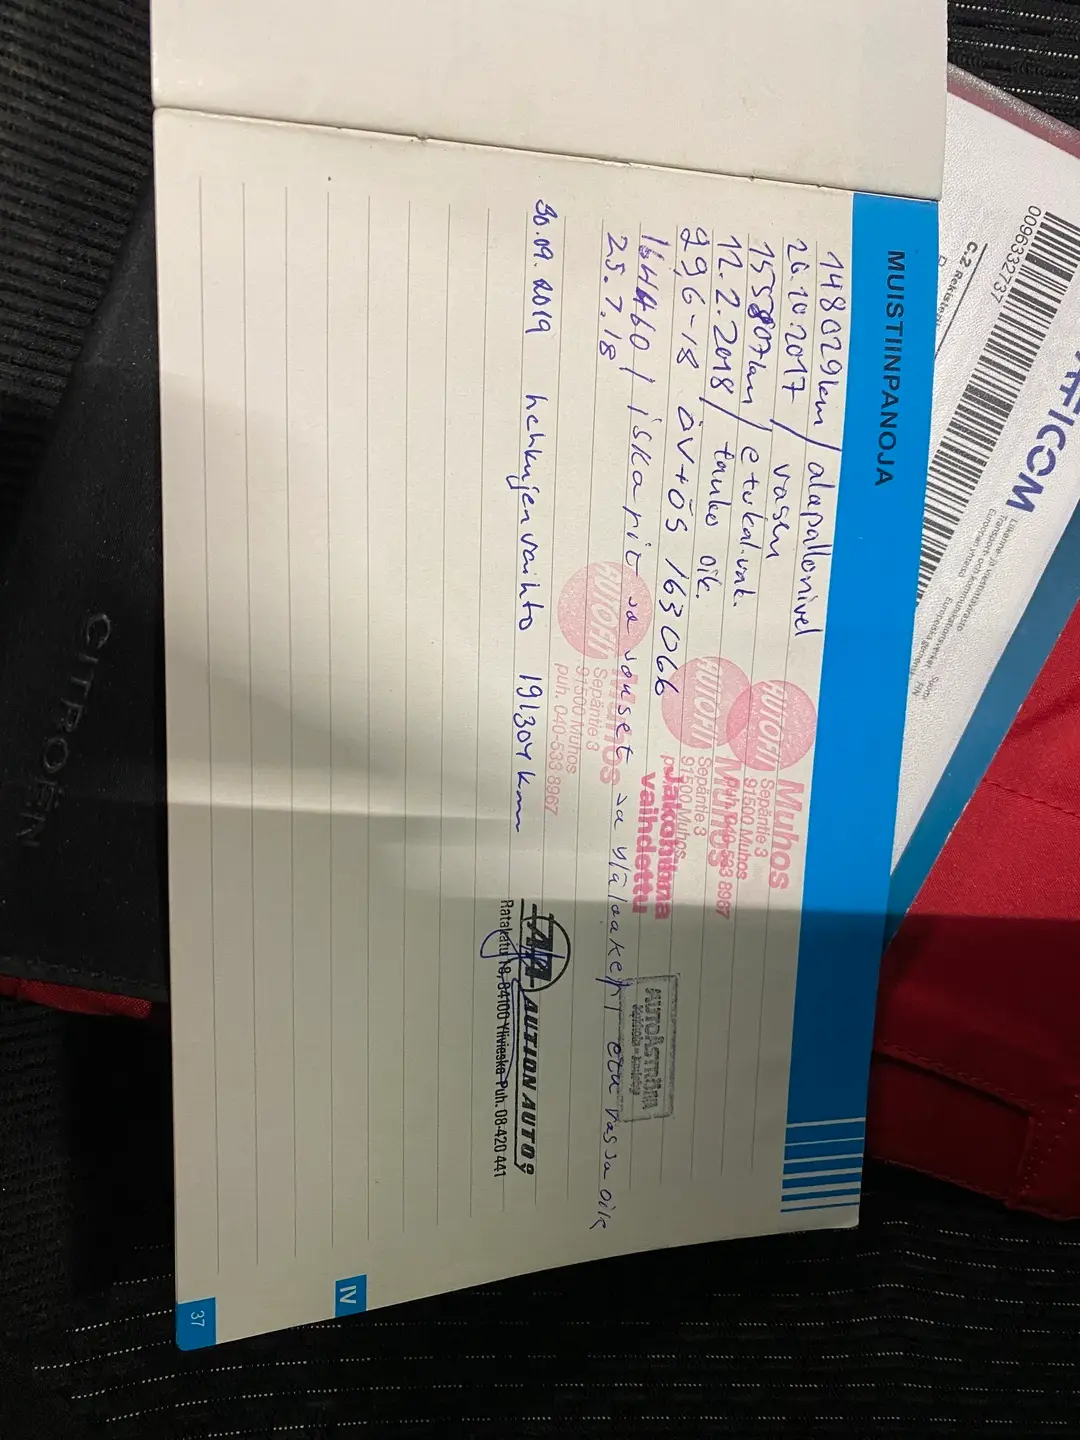 MUISTIINPANOJA
148029km / alapallonivel
26.10.2017 vasen
155807km / etukal.vak.
12.2.2018 / tanko oik.
29,6-18 ÖV+ÖS 163066
164460 / iskarit ja jouset ja yläläakeri etu vas ja oik
25.7.18
30.09.2019 hehkujen vaihto 191304 km
AUTOFIT Muhos
Sepäntie 3
91500 Muhos
puh. 040-533 8967
AUTOFIT Muhos
Sepäntie 3
91500 Muhos
Jakohihna
vaihdettu
AUTOFIT Muhos
Sepäntie 3
91500 Muhos
puh. 040-533 8967
AUTOÅSTRÖM
AUTION AUTO
Ratakatu 18, 84100 Ylivieska Puh. 08-420 441
IV
37
CITROËN
0096332737
FICOM
Liikenne- ja viestintävirasto
Transport- och kommunikationsverket
Suomi
Euroopan yhteisö
Europeiska gemenskapen
FIN